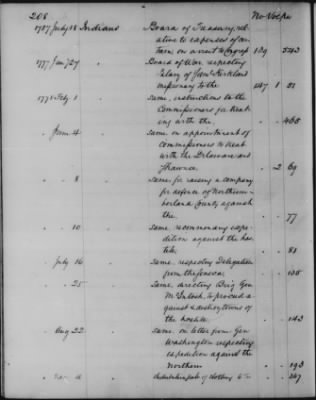 208 No Vol pa
1787 July 18 Indians Board of Treasury, rel-
ative to expenses of
on a visit to Congress 139 543
1777 Jany 27 Board of War, respecting
Salary of Saml Kirkland
missionary to the 147 1 51
1778 Feby 1 Same, instructions to the
Commissioners for treat-
ing with the " " 465
June 4 " Same on appointment of
Commissioners to treat
with the Delawares and
Shawnee " 2 69
" 8 " Same, for raising a company
for defence of Northum-
berland County against
the " " 77
" 10 " Same, recommending expe-
dition against the hos-
tile " " 81
July 16 " Same, respecting Delegation
from the Seneca " " 135
" 25 " Same, directing Brig Gen
McIntosh to proceed a-
gainst & destroy towns of
the hostile " " 143
Aug 22 " Same, on letter from Gen
Washington respecting
expedition against the
Northern " " 193
" of clothing to the " " 247